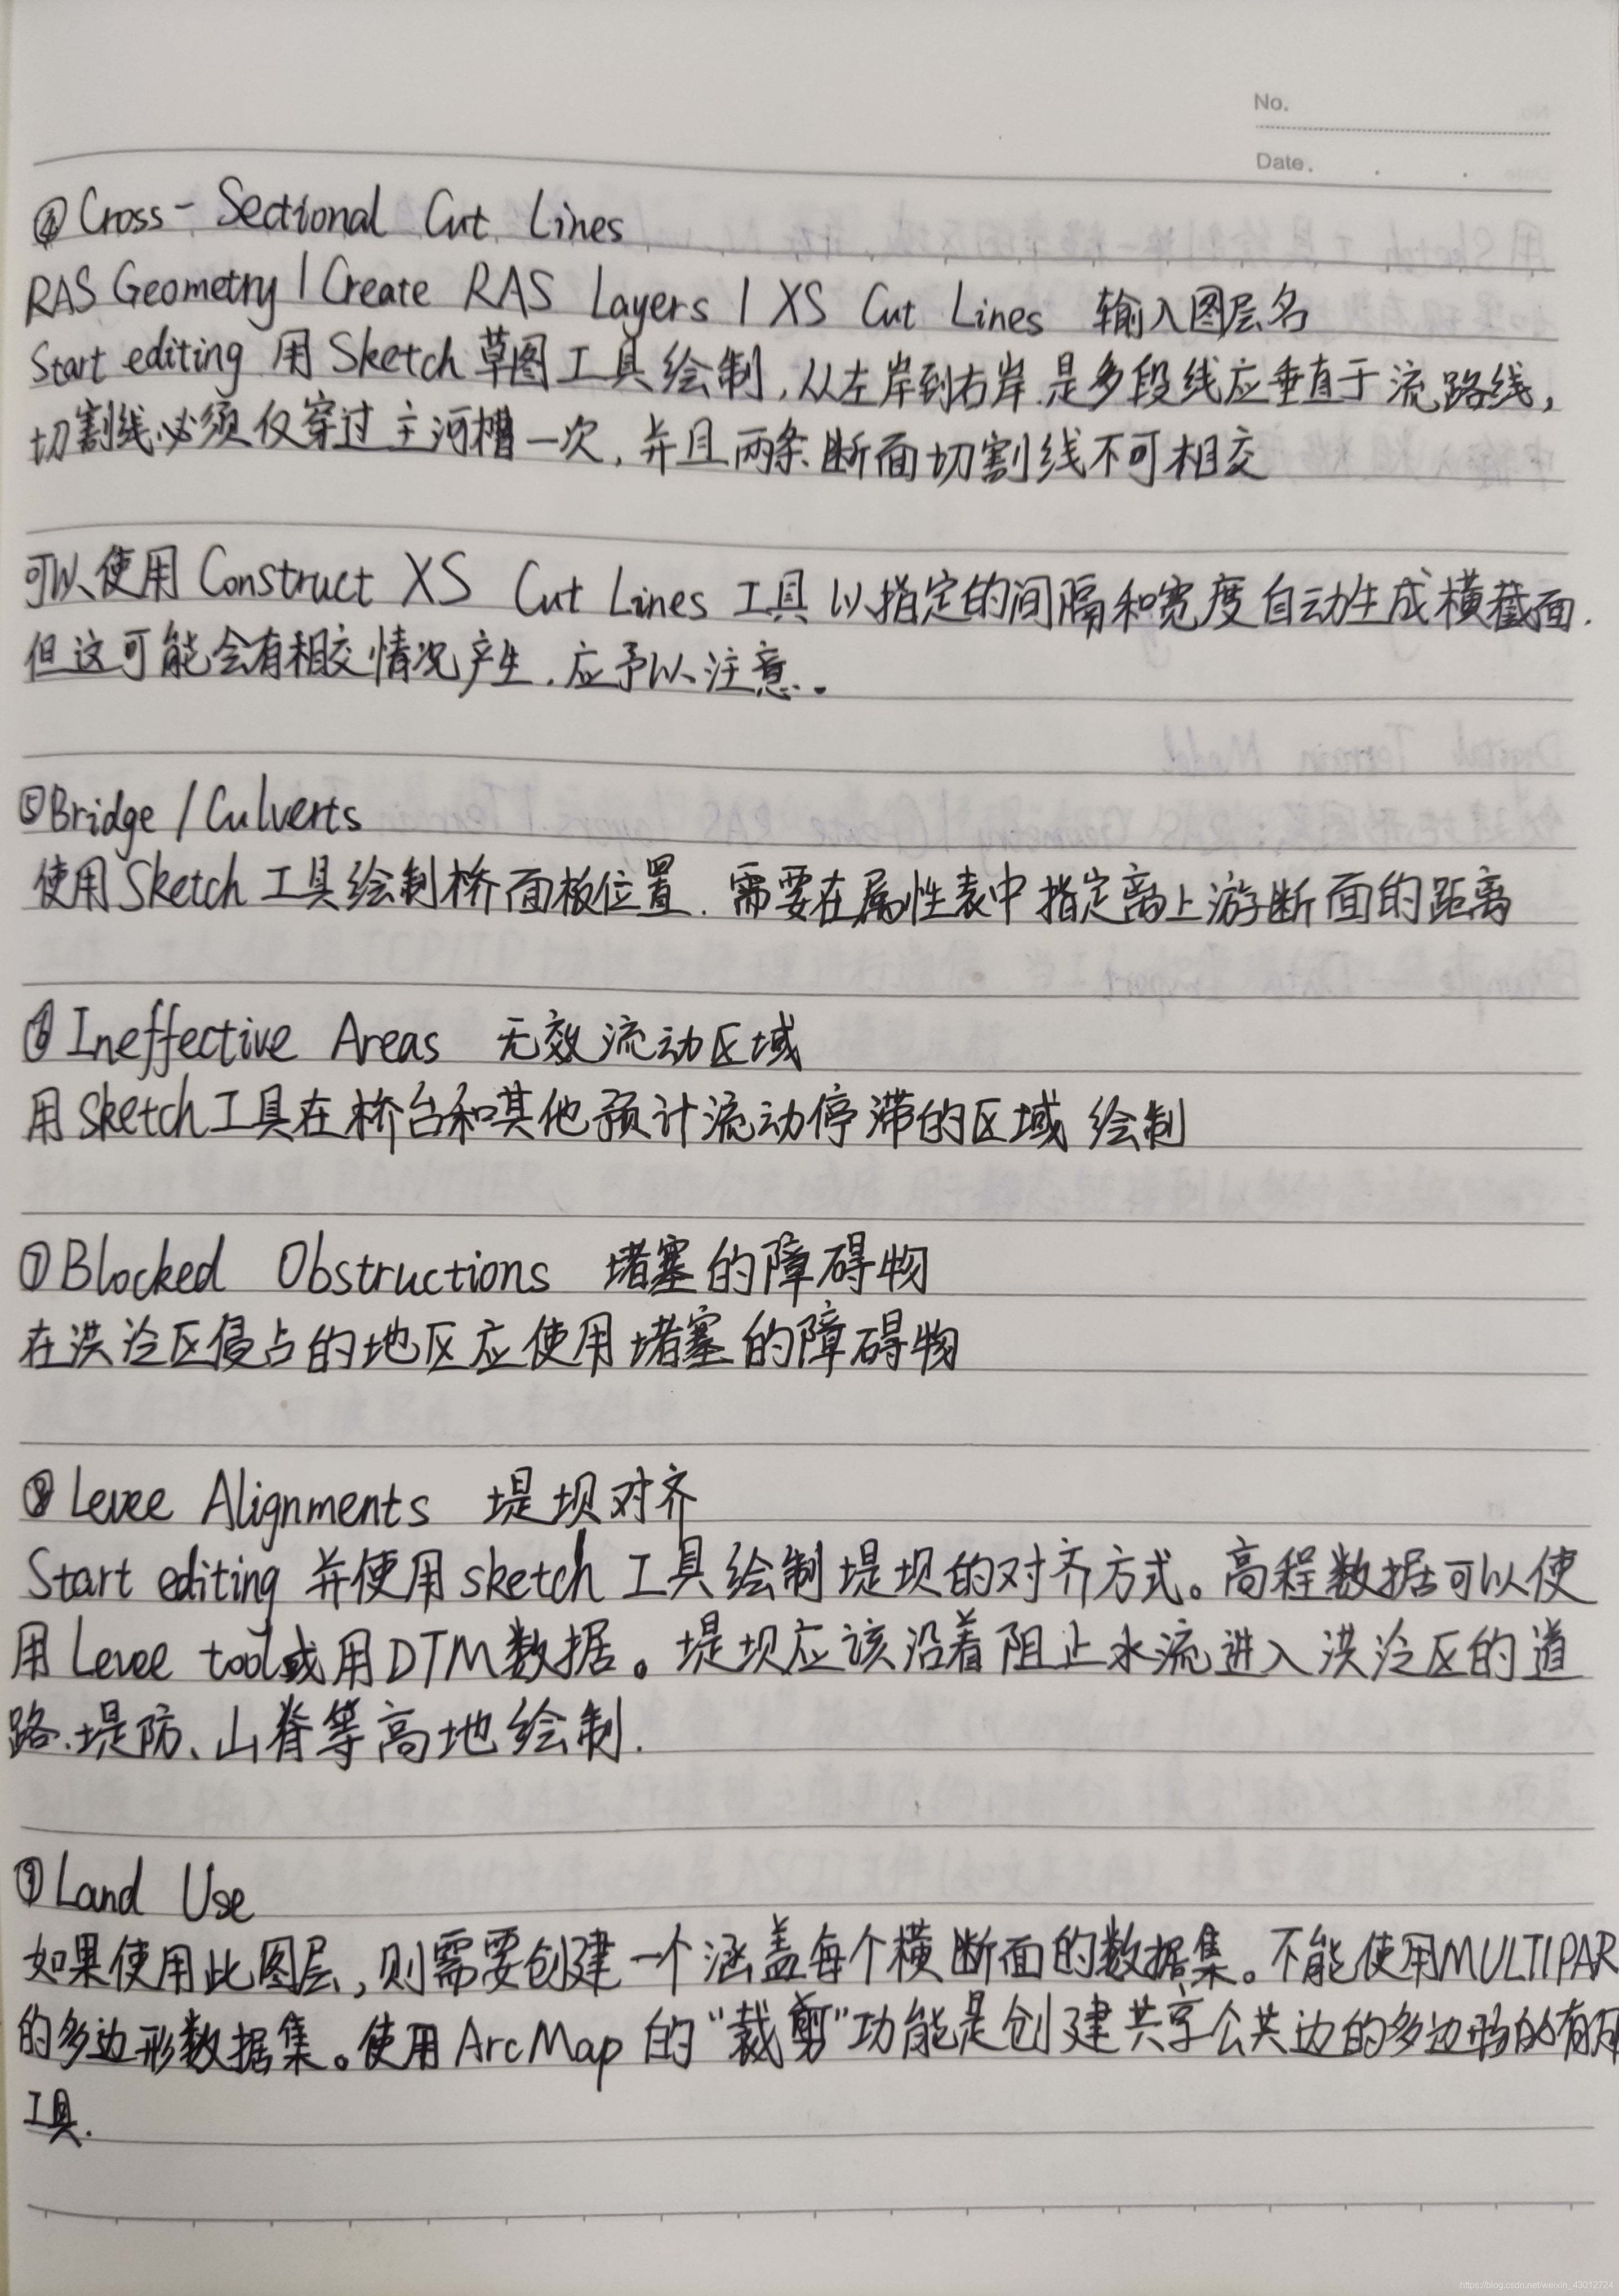 No.
Date.
④Cross-Sectional Cut Lines
RAS Geometry | Create RAS Layers | XS Cut Lines 输入图层名
Start editing 用 Sketch 草图工具绘制,从左岸到右岸.是多段线应垂直于流路线,
切割线必须仅穿过主河槽一次,并且两条断面切割线不可相交
可以使用 Construct XS Cut Lines 工具以指定的间隔和宽度自动生成横截面.
但这可能会有相交情况产生.应予以注意.
⑤Bridge/Culverts
使用Sketch工具绘制桥面板位置.需要在属性表中指定离上游断面的距离
⑥Ineffective Areas 无效流动区域
用sketch工具在桥台和其他预计流动停滞的区域绘制
⑦Blocked Obstructions 堵塞的障碍物
在洪泛区侵占的地区应使用堵塞的障碍物
⑧Levee Alignments 堤坝对齐
Start editing 并使用sketch工具绘制堤坝的对齐方式。高程数据可以使
用Levee tool或用DTM数据。堤坝应该沿着阻止水流进入洪泛区的道
路、堤防、山脊等高地绘制.
⑨Land Use
如果使用此图层,则需要创建一个涵盖每个横断面的数据集。不能使用MULTIPAR
的多边形数据集。使用ArcMap的“裁剪”功能是创建共享公共边的多边形的有用
工具.
https://blog.csdn.net/weixin_43012724